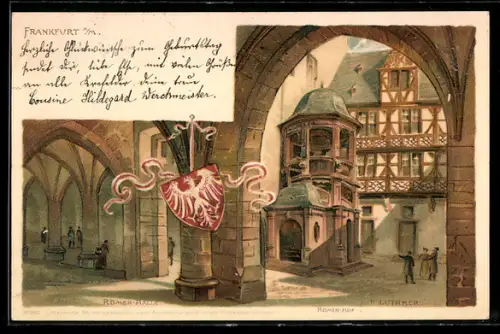 FRANKFURT a/M.
Herzliche Glückwünsche zum Geburtstag
sendet dir, liebe Else, mit vielen Grüßen
an alle Krefelder deine treue
Cousine Hildegard Werckmeister.
RÖMER-HALLE
RÖMER-HOF
F. LUTHMER